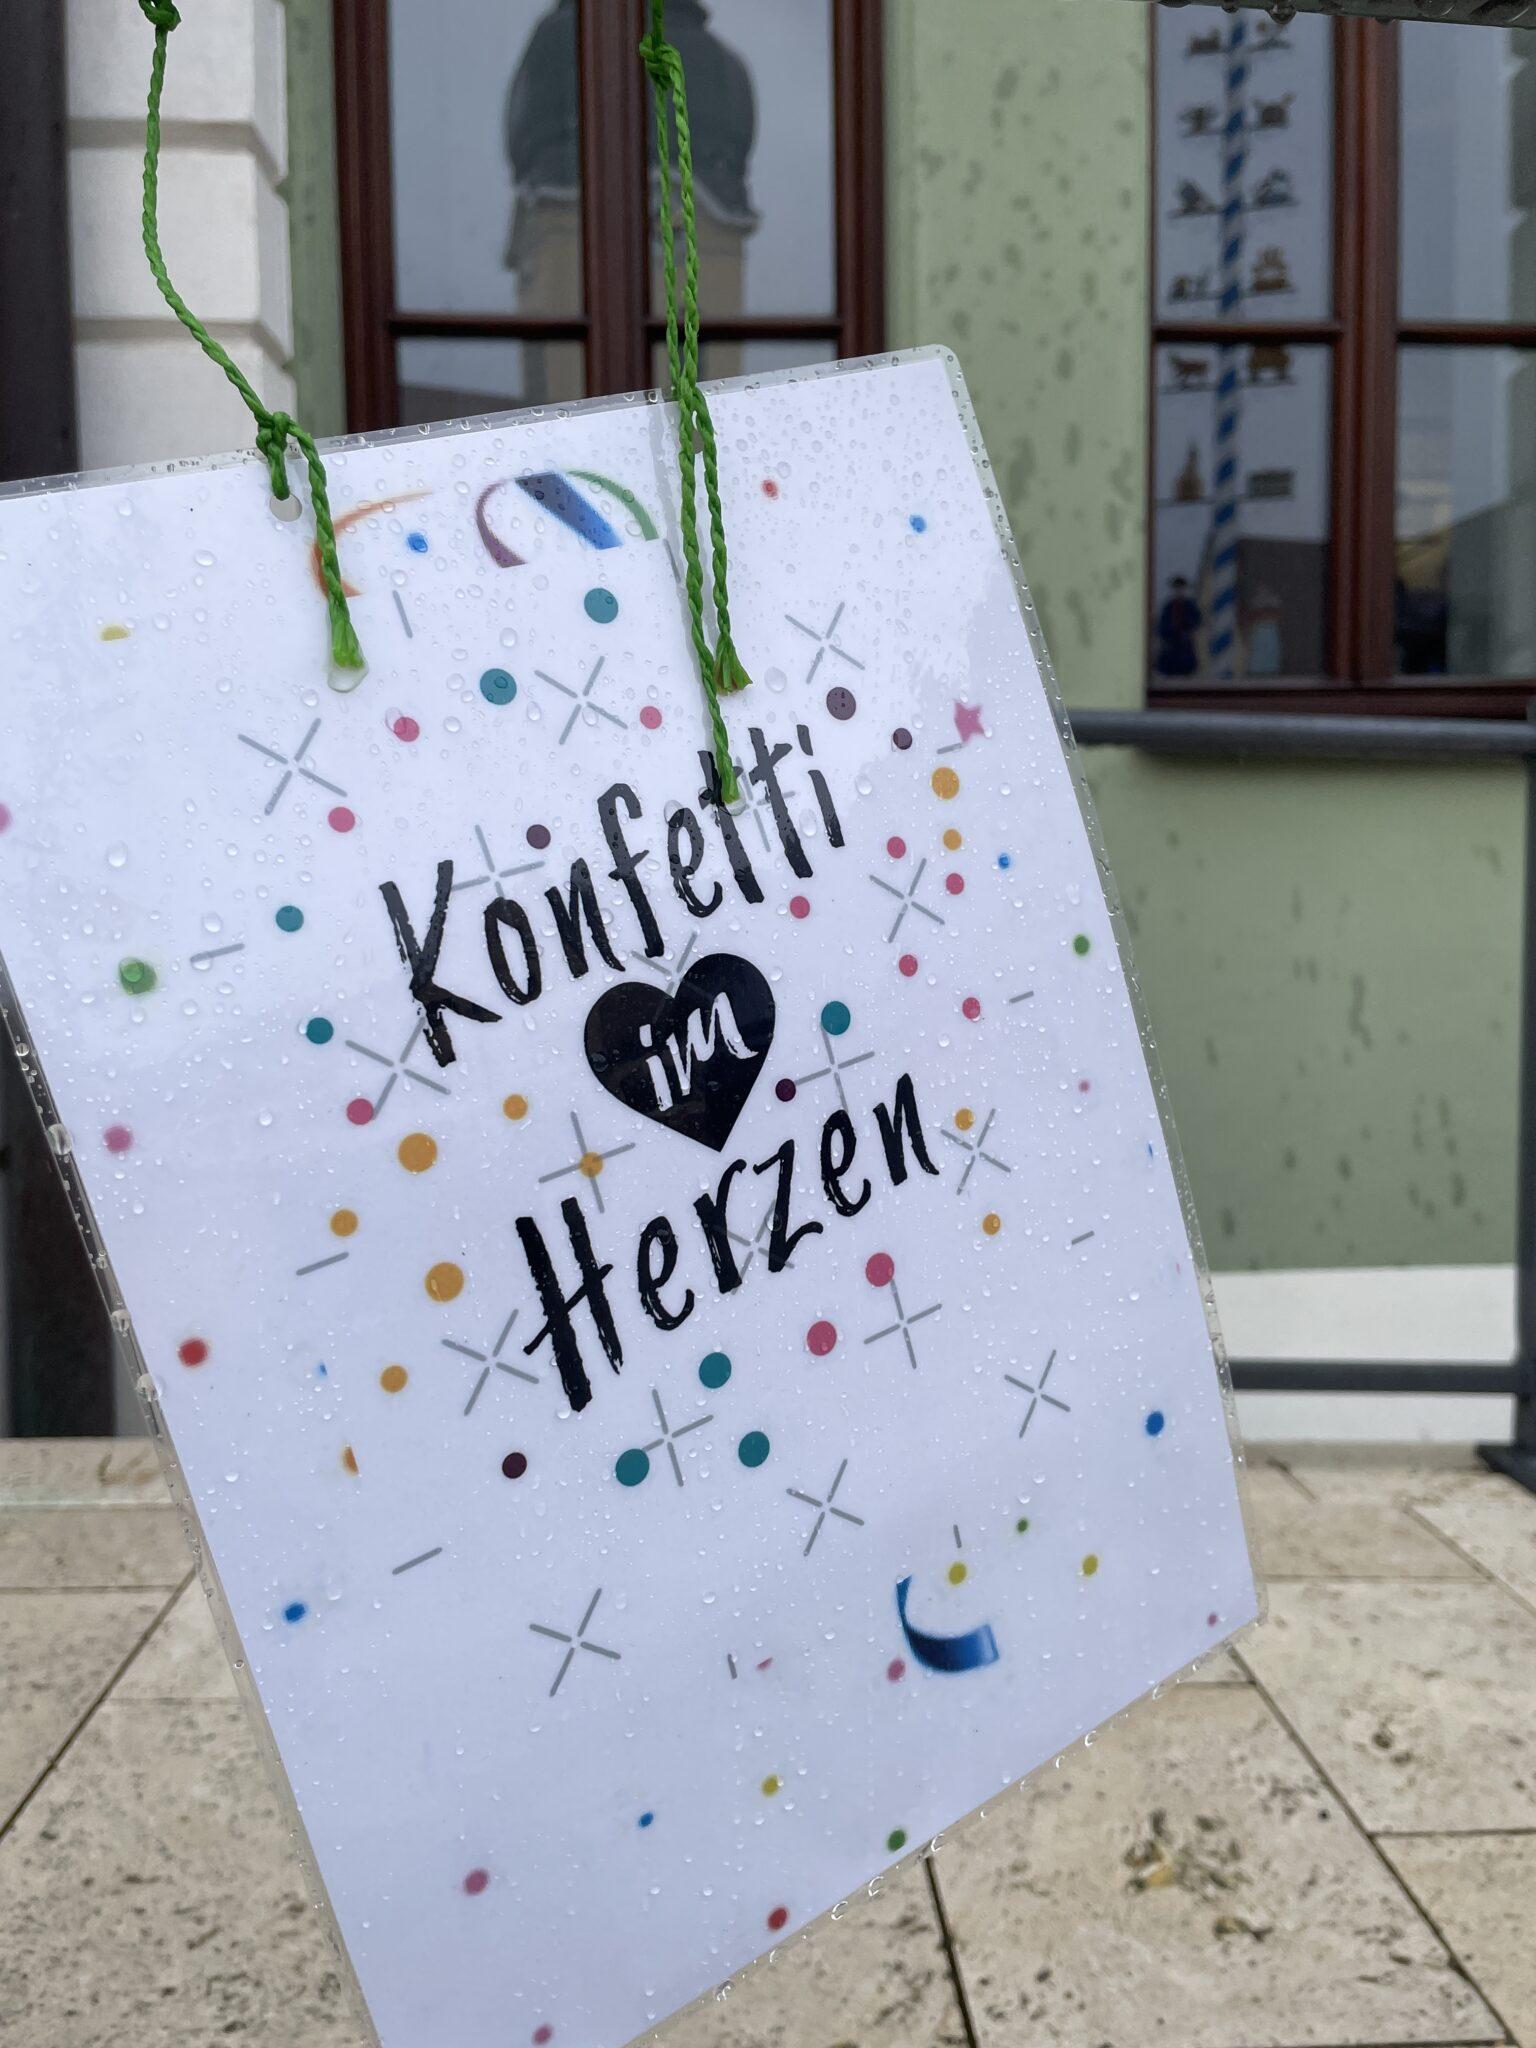 Konfetti
im
Herzen